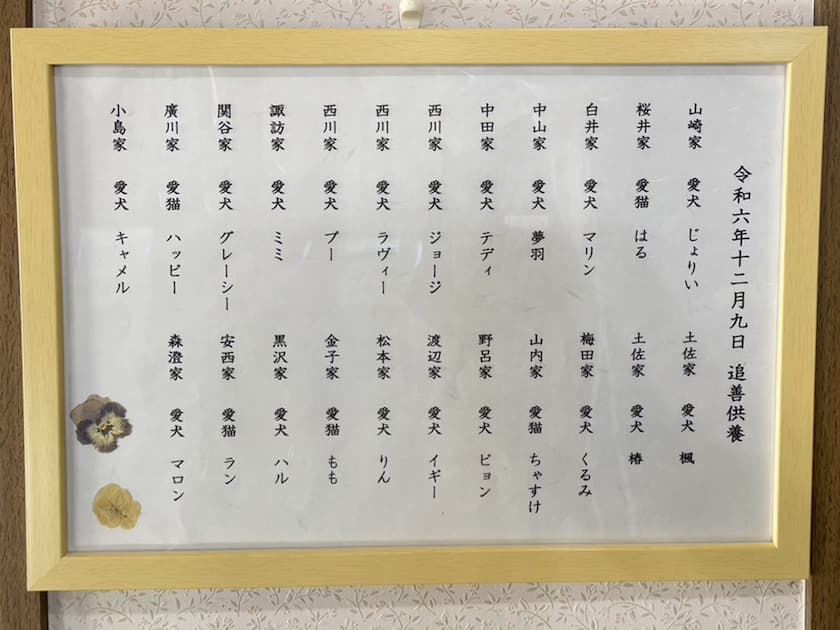 令和六年十二月九日 追善供養
山崎家 愛犬 じょりい
桜井家 愛猫 はる
白井家 愛犬 マリン
中山家 愛犬 夢羽
中田家 愛犬 テディ
西川家 愛犬 ジョージ
西川家 愛犬 ラヴィー
西川家 愛犬 プー
諏訪家 愛犬 ミミ
関谷家 愛犬 グレーシー
廣川家 愛猫 ハッピー
小島家 愛犬 キャメル
土佐家 愛犬 楓
土佐家 愛犬 椿
梅田家 愛犬 くるみ
山内家 愛猫 ちゃすけ
野呂家 愛犬 ビョン
渡辺家 愛犬 イギー
松本家 愛犬 りん
金子家 愛猫 もも
黒沢家 愛犬 ハル
安西家 愛猫 ラン
森澄家 愛犬 マロン